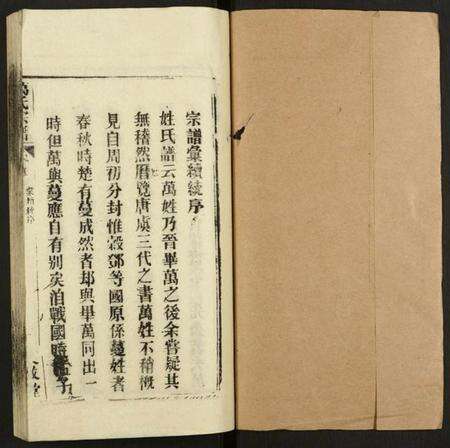 宗譜彙續續序
姓氏譜云萬姓乃晉畢萬之後余嘗疑其
無稽然曆覽唐虞三代之書萬姓不稍槪
見自周初分封惟穀鄧等國原係蔓姓者
春秋時楚有蔓成然者却與畢萬同出一
時但萬與蔓應自有別矣洎戰國時